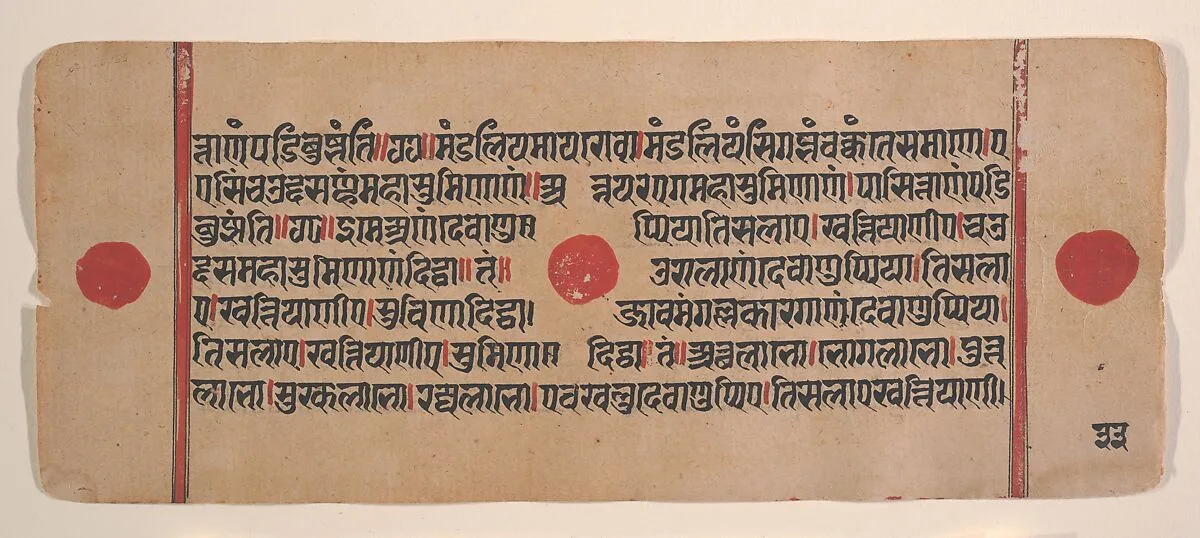 त्ताणंपडिबुझंति॥७७॥मंडलियमायरोवा।मंडलियंसिगझंवक्कंतेसमाणे।ए
एसिंचउद्दसण्हंमहासुमिणाणं॥अन्नयरएगमहासुमिणाणं।पासित्ताणंपडि
बुझंति॥७८॥इमेअणंदेवाणुप्पियातिसलाए।खत्तियाणीए।चउ
द्दसमहासुमिणाणंदिट्ठा॥तं॥उरालाणंदेवाणुप्पिया।तिसला
ए।खत्तियाणीए।सुविणादिट्ठा।जावमंगल्लकारगाणंदेवाणुप्पिया।
तिसलाए।खत्तियाणीए।सुमिणाएदिट्ठा।तं॥अत्थलाभो।भोगलाभो।पुत्त
लाभो।सुरकलाभो।रज्जलाभो।एवंखलुदेवाणुप्पिए।तिसलाएखत्तियाणी।
३३